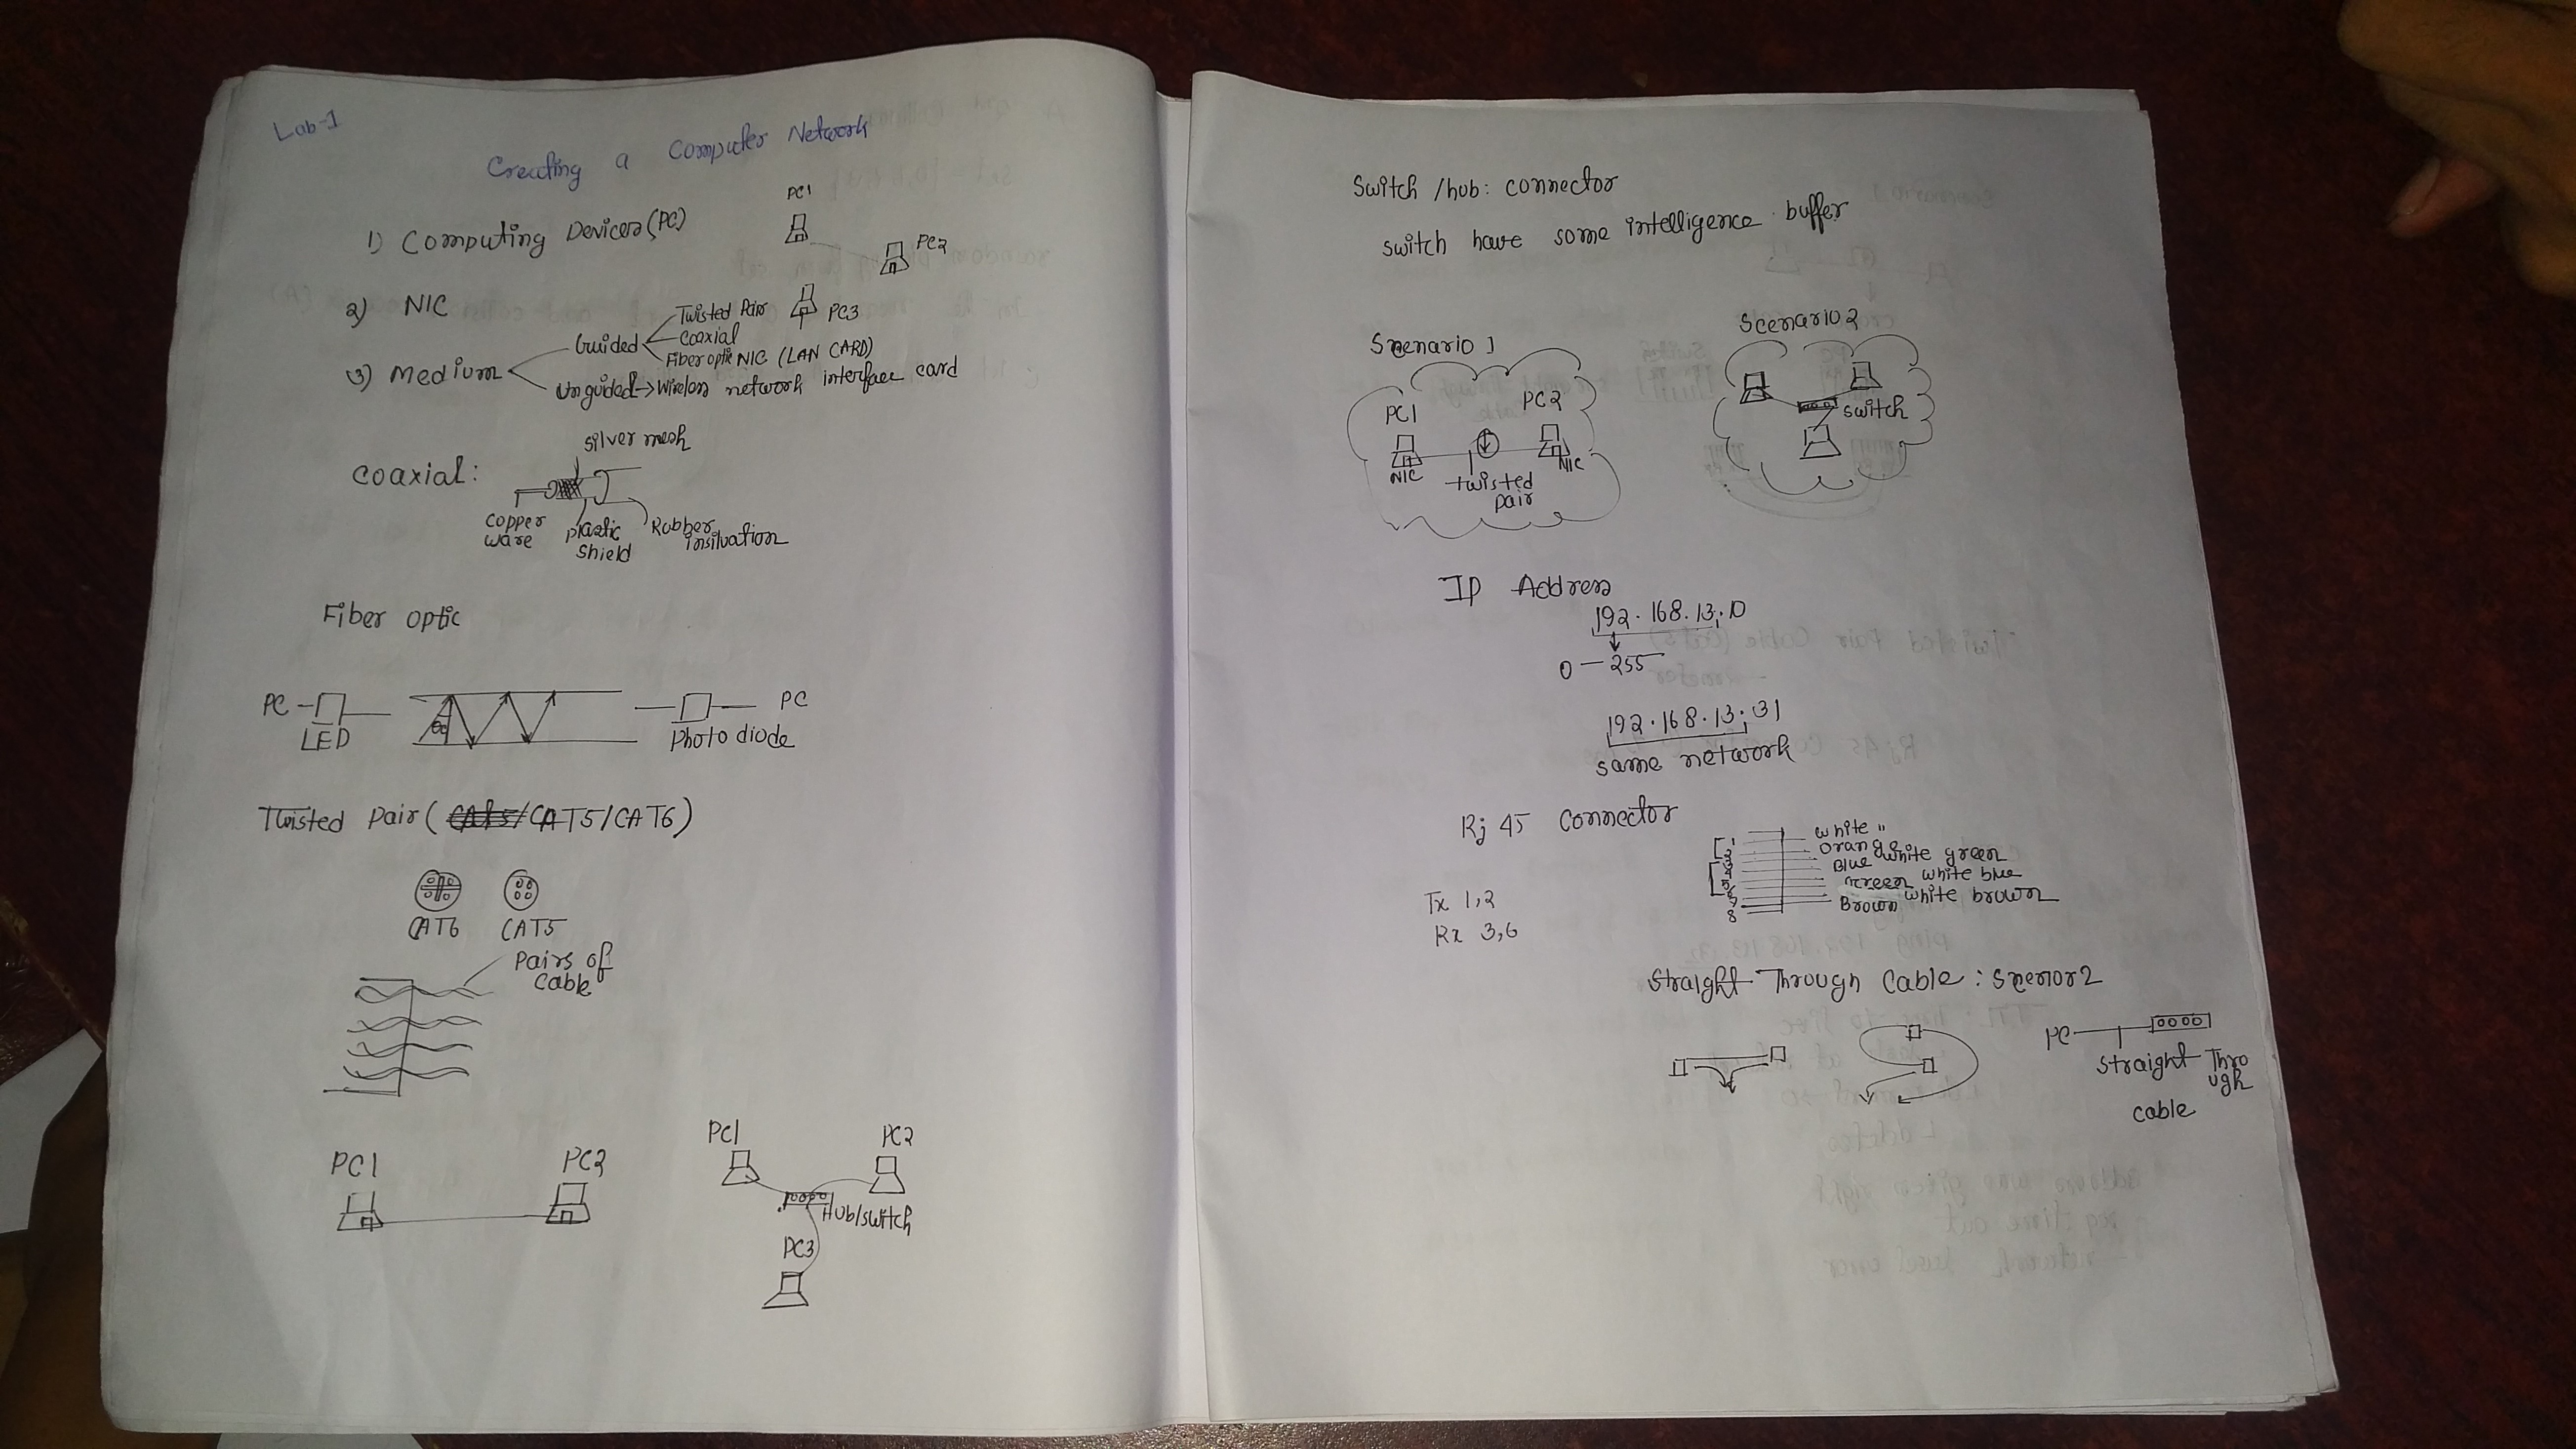 Lab-1
Creating a Computer Network
1) Computing Devices (PC)
PC1
PC2
2) NIC
PC3
3) Medium
Guided
Twisted Pair
Coaxial
Fiber optic
NIC (LAN CARD)
Unguided → Wireless
network interface card
Coaxial:
Silver mesh
Copper
ware
plastic
shield
Rubber
Fiber optic
PC
LED
Photo diode
PC
Twisted Pair (CAT5/CAT6)
CAT6
CAT5
Pairs of
Cable
PC1
PC2
PC1
PC2
Hub/switch
PC3
Switch /hub: connector
switch have some intelligence buffer
Scenario 2
PC1
PC2
NIC
NIC
twisted
pair
switch
IP Address
192.168.13.10
0 — 255
192.168.13.31
same network
Rj 45 Connector
1
2
3
4
5
6
7
8
white "
orange
white green
Blue
white blue
Green
white brown
Brown
Tx 1,2
Rx 3,6
Straight Through Cable:
PC
straight Thro
ugh
cable